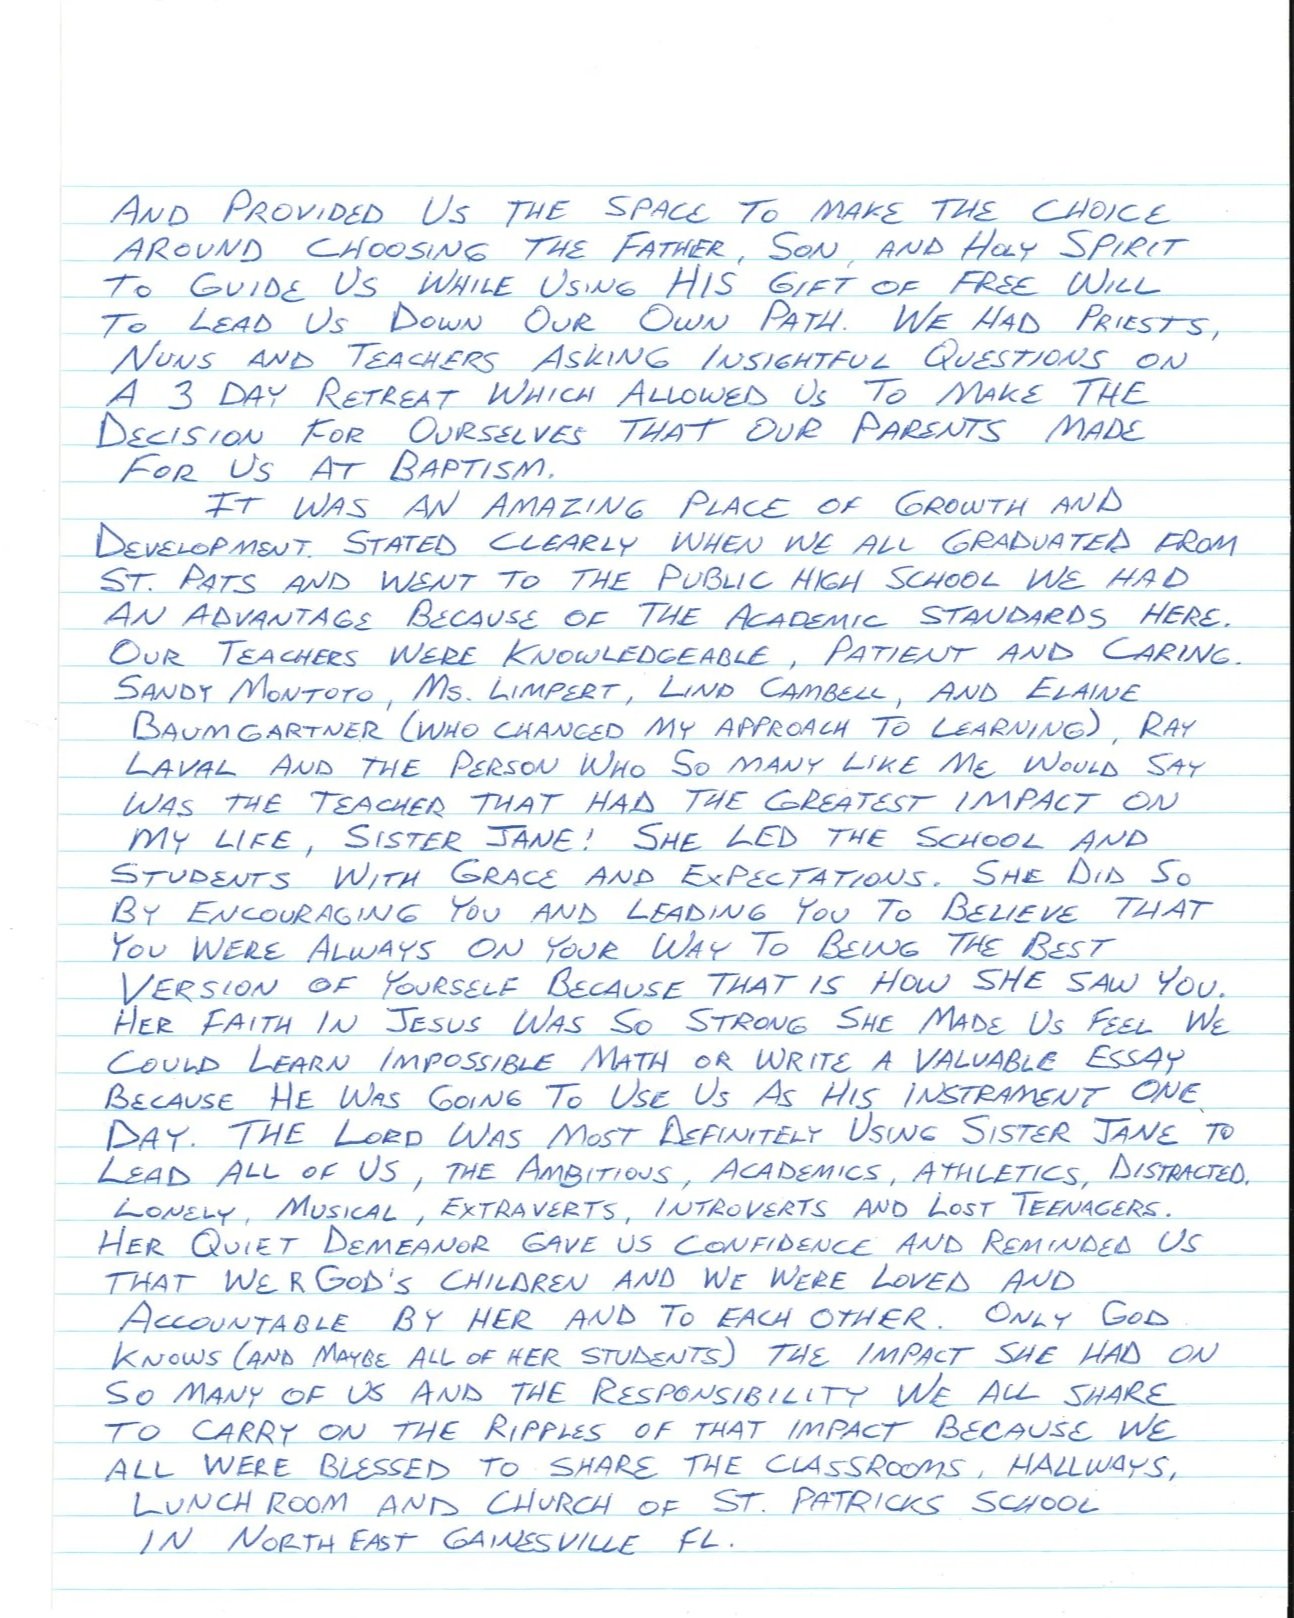 AND PROVIDED US THE SPACE TO MAKE THE CHOICE
AROUND CHOOSING THE FATHER, SON, AND HOLY SPIRIT
TO GUIDE US WHILE USING HIS GIFT OF FREE WILL
TO LEAD US DOWN OUR OWN PATH. WE HAD PRIESTS,
NUNS AND TEACHERS ASKING INSIGHTFUL QUESTIONS ON
A 3 DAY RETREAT WHICH ALLOWED US TO MAKE THE
DECISION FOR OURSELVES THAT OUR PARENTS MADE
FOR US AT BAPTISM.
IT WAS AN AMAZING PLACE OF GROWTH AND
DEVELOPMENT. STATED CLEARLY WHEN WE ALL GRADUATED FROM
ST. PATS AND WENT TO THE PUBLIC HIGH SCHOOL WE HAD
AN ADVANTAGE BECAUSE OF THE ACADEMIC STANDARDS HERE.
OUR TEACHERS WERE KNOWLEDGEABLE, PATIENT AND CARING.
SANDY MONTOTO, MS. LIMPERT, LIND CAMBELL, AND ELAINE
BAUMGARTNER (WHO CHANGED MY APPROACH TO LEARNING), RAY
LAVAL AND THE PERSON WHO SO MANY LIKE ME WOULD SAY
WAS THE TEACHER THAT HAD THE GREATEST IMPACT ON
MY LIFE, SISTER JANE! SHE LED THE SCHOOL AND
STUDENTS WITH GRACE AND EXPECTATIONS. SHE DID SO
BY ENCOURAGING YOU AND LEADING YOU TO BELIEVE THAT
YOU WERE ALWAYS ON YOUR WAY TO BEING THE BEST
VERSION OF YOURSELF BECAUSE THAT IS HOW SHE SAW YOU.
HER FAITH IN JESUS WAS SO STRONG SHE MADE US FEEL WE
COULD LEARN IMPOSSIBLE MATH OR WRITE A VALUABLE ESSAY
BECAUSE HE WAS GOING TO USE US AS HIS INSTRAMENT ONE
DAY. THE LORD WAS MOST DEFINITELY USING SISTER JANE TO
LEAD ALL OF US, THE AMBITIOUS, ACADEMICS, ATHLETICS, DISTRACTED,
LONELY, MUSICAL, EXTRAVERTS, INTROVERTS AND LOST TEENAGERS.
HER QUIET DEMEANOR GAVE US CONFIDENCE AND REMINDED US
THAT WE R GOD'S CHILDREN AND WE WERE LOVED AND
ACCOUNTABLE BY HER AND TO EACH OTHER. ONLY GOD
KNOWS (AND MAYBE ALL OF HER STUDENTS) THE IMPACT SHE HAD ON
SO MANY OF US AND THE RESPONSIBILITY WE ALL SHARE
TO CARRY ON THE RIPPLES OF THAT IMPACT BECAUSE WE
ALL WERE BLESSED TO SHARE THE CLASSROOMS, HALLWAYS,
LUNCH ROOM AND CHURCH OF ST. PATRICKS SCHOOL
IN NORTH EAST GAINESVILLE FL.